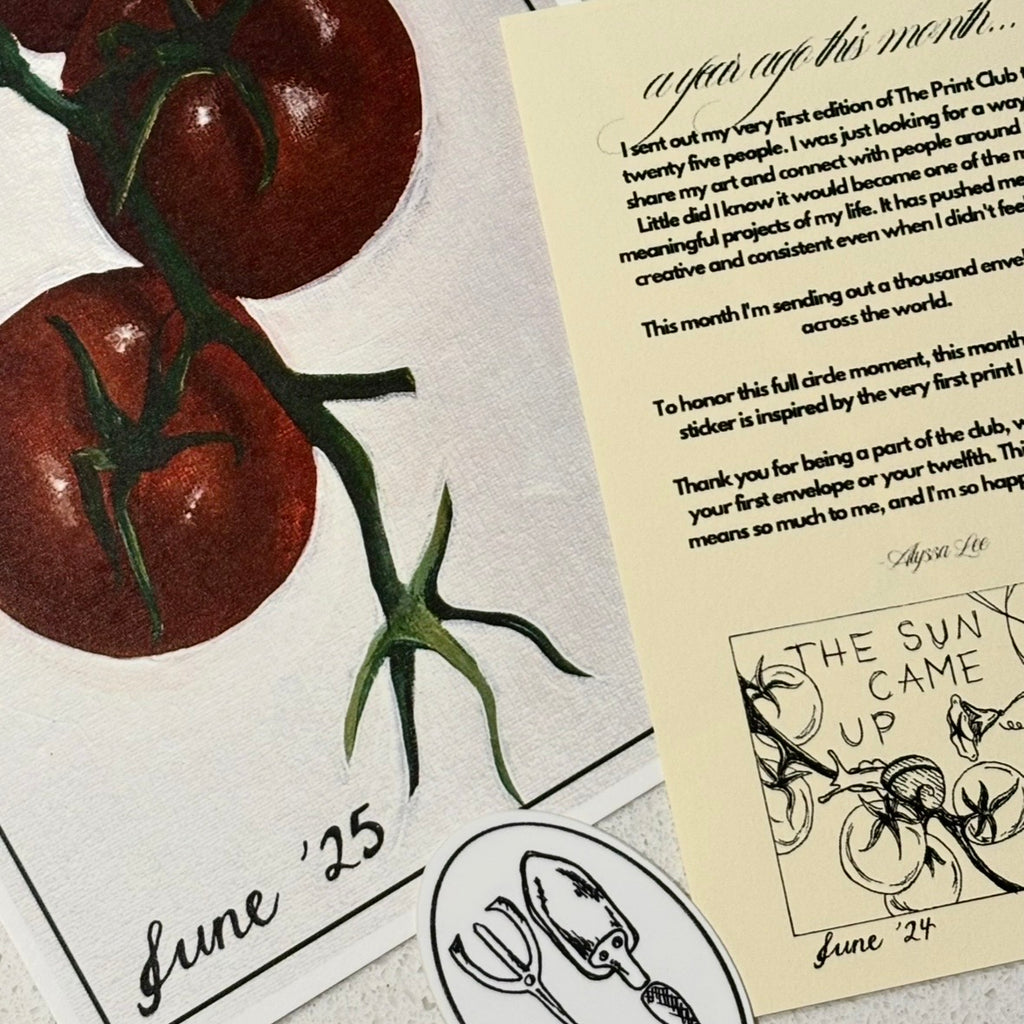 a year ago this month...
I sent out my very first edition of The Print Club
twenty five people. I was just looking for a way
share my art and connect with people around
Little did I know it would become one of the
meaningful projects of my life. It has pushed me
creative and consistent even when I didn't feel
This month I'm sending out a thousand
across the world.
To honor this full circle moment, this month
sticker is inspired by the very first print I
Thank you for being a part of the club,
your first envelope or your twelfth.
means so much to me, and I'm so
-Alyssa Lee
THE SUN
CAME
UP
June '24
June '25